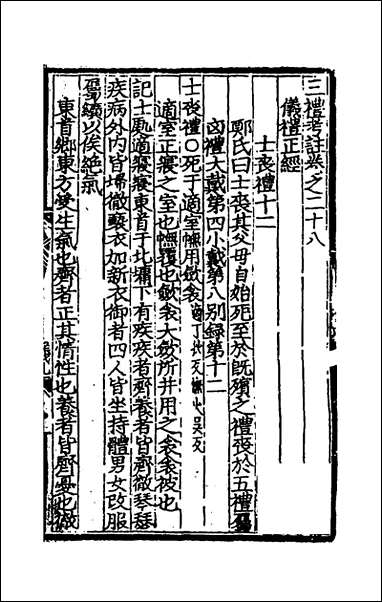 三禮考註卷之二十八
儀禮正經
士喪禮十二
鄭氏曰士喪其父母自始死至於旣殯之禮喪於五禮屬
凶禮大戴第四小戴第八別録第十二
士喪禮〇死于適室幠用斂衾適丁狄反幠火吳反
適室正寢之室也幠覆也斂衾大斂所并用之衾衾被也
記士處適寢寢東首于北墉下有疾疾者齊養者皆齊徹琴瑟
疾病外内皆埽徹䙝衣加新衣御者四人皆坐持體男女改服
屬纊以俟絶氣
東首鄉東方受生氣也齊者正其情性也養者皆齊憂也徹